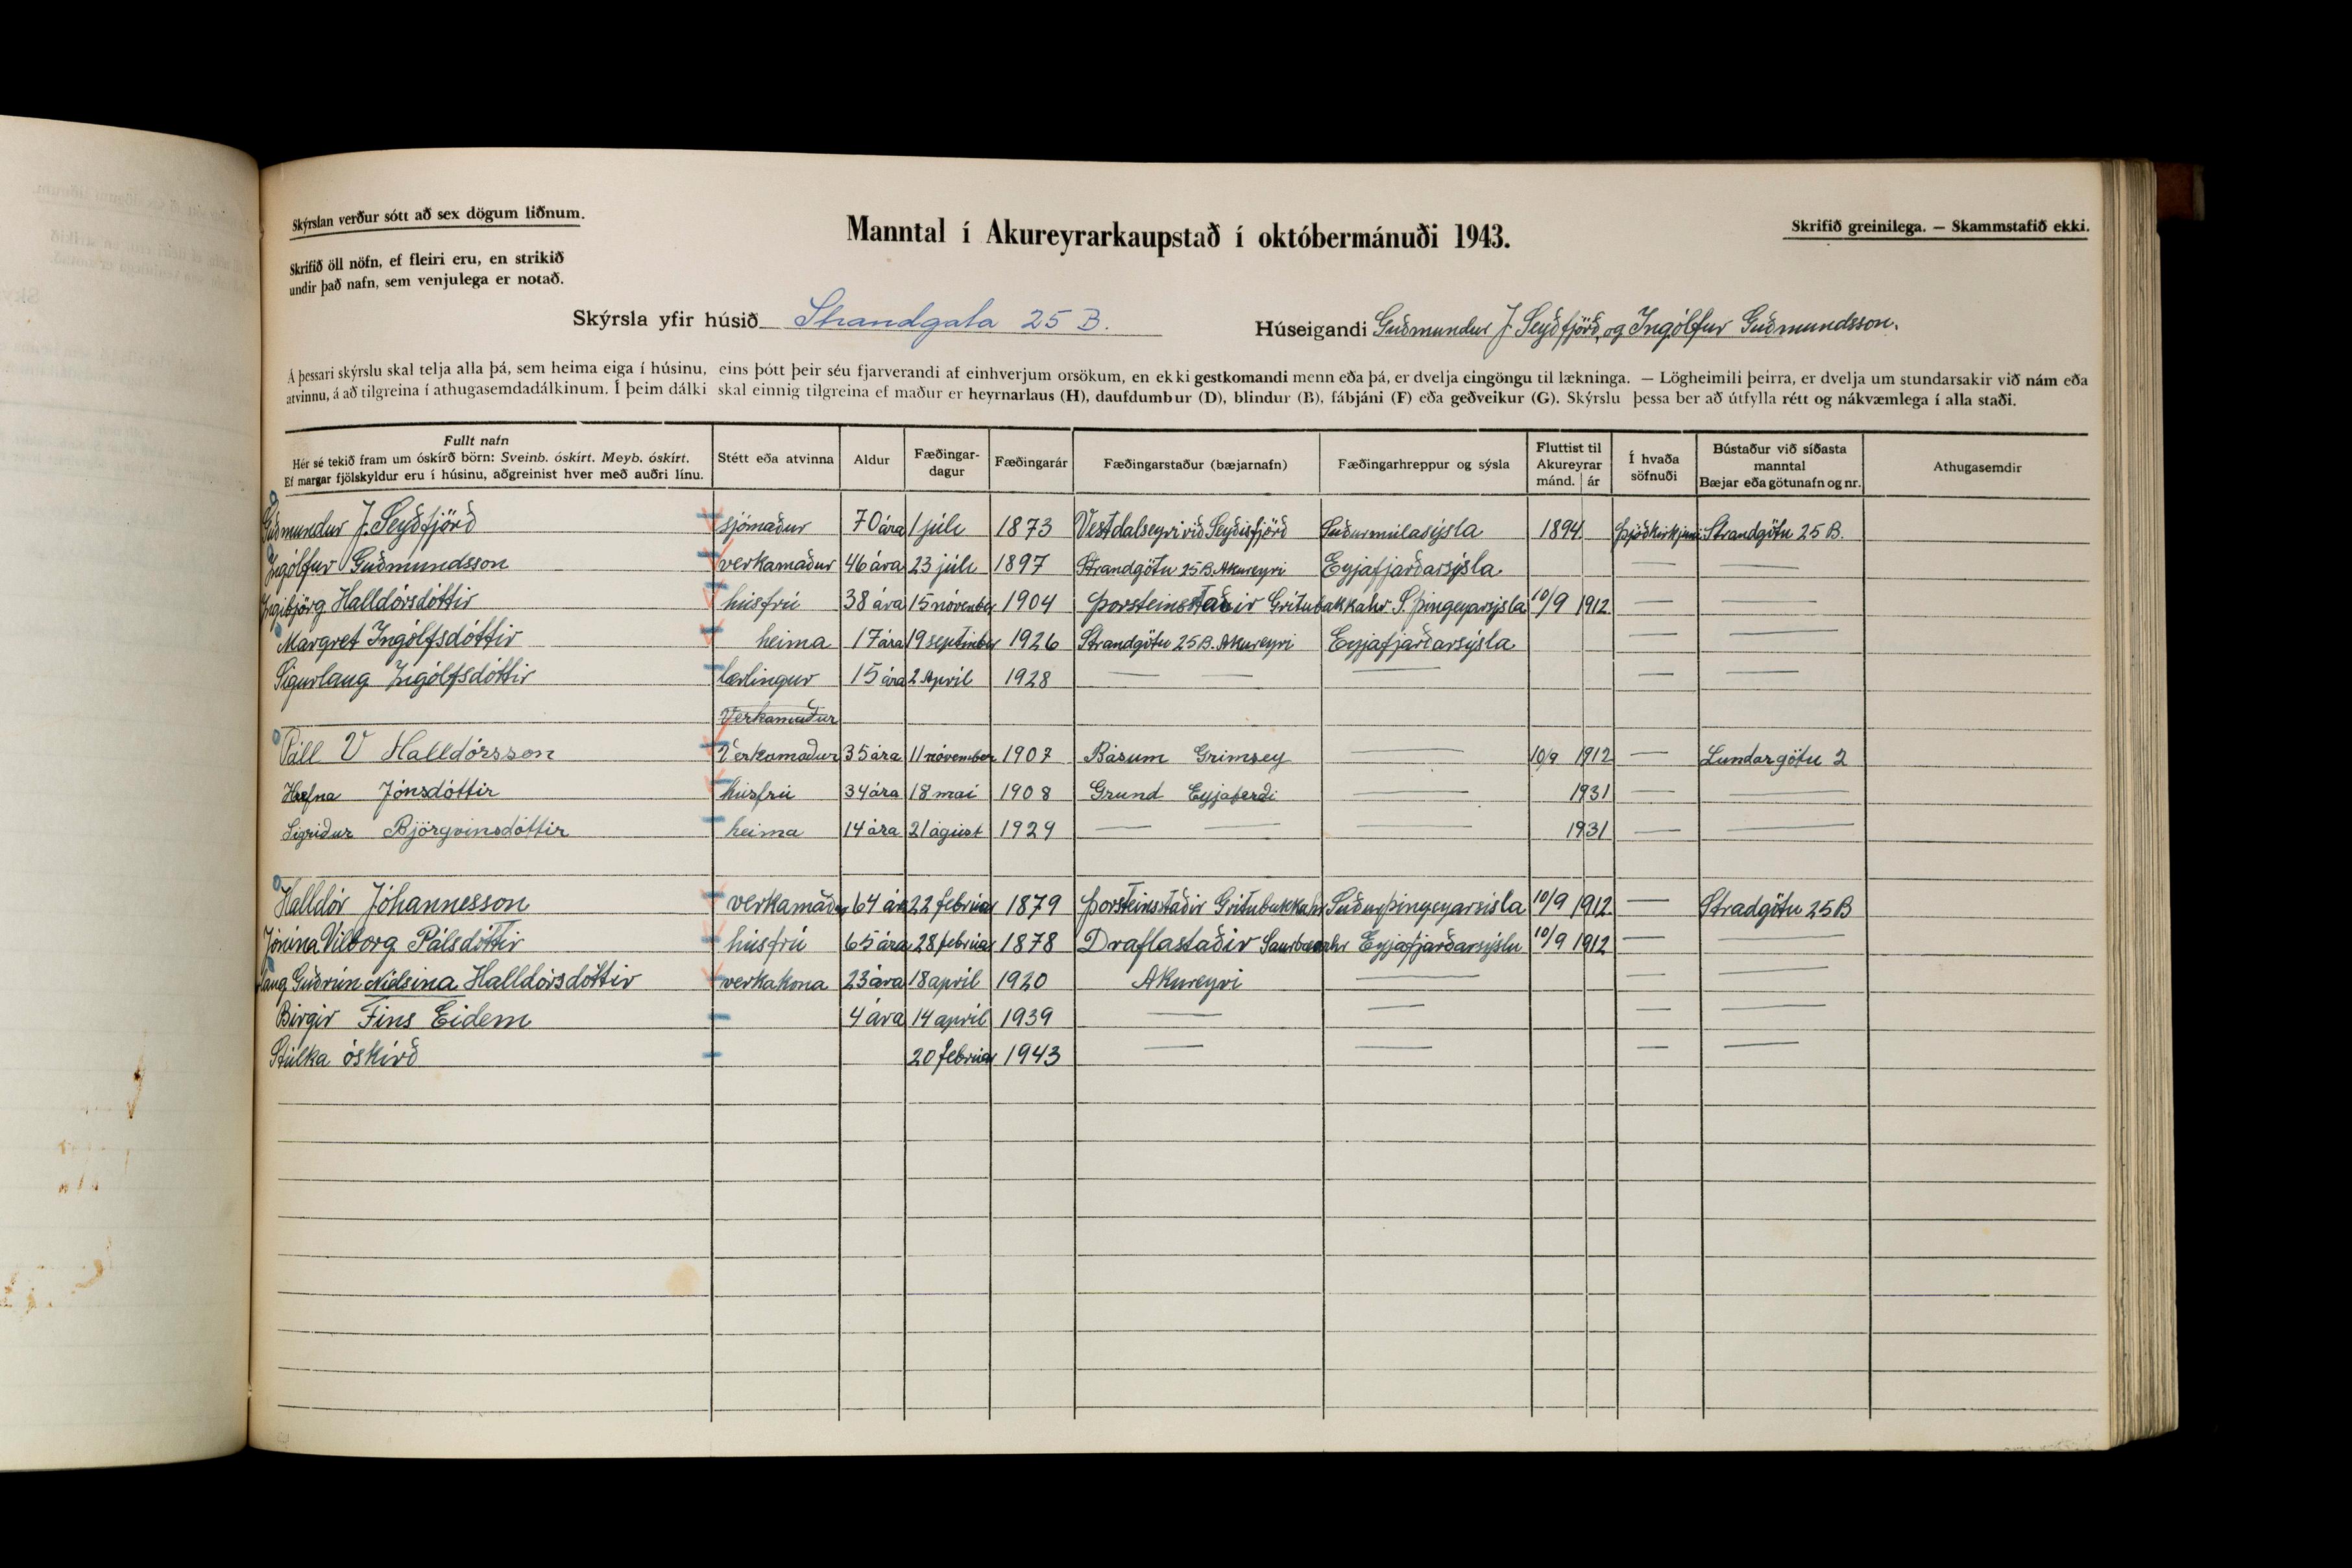 Skýrslan verður sótt að sex dögum liðnum.
Manntal í Akureyrarkaupstað í októbermánuði 1943.
Skrifið greinilega. — Skammstafið ekki.
Skrifið öll nöfn, ef fleiri eru, en strikið
undir það nafn, sem venjulega er notað.
Skýrsla yfir húsið Strandgata 25 B.
Húseigandi Guðmundur J. Seyðfjörð, og Ingólfur Guðmundsson.
Á þessari skýrslu skal telja alla þá, sem heima eiga í húsinu, eins þótt þeir séu fjarverandi af einhverjum orsökum, en ekki gestkomandi menn eða þá, er dvelja eingöngu til lækninga. — Lögheimili þeirra, er dvelja um stundarsakir við nám eða
atvinnu, á að tilgreina í athugasemdadálkinum. Í þeim dálki skal einnig tilgreina ef maður er heyrnarlaus (H), daufdumbur (D), blindur (B), fábjáni (F) eða geðveikur (G). Skýrslu þessa ber að útfylla rétt og nákvæmlega í alla staði.
Fullt nafn
Hér sé tekið fram um óskírð börn: Sveinb. óskírt. Meyb. óskírt.
Ef margar fjölskyldur eru í húsinu, aðgreinist hver með auðri línu.
Stétt eða atvinna
Aldur
Fæðingar-
dagur
Fæðingarár
Fæðingarstaður (bæjarnafn)
Fæðingarhreppur og sýsla
Fluttist til
Akureyrar
mánd. ár
Í hvaða
söfnuði
Bústaður við síðasta
manntal
Bæjar eða götunafn og nr.
Athugasemdir
Guðmundur J. Seyðfjörð sjómaður 70 ára 1 júlí 1873 Vestdalseyri við Seyðisfjörð Suðurmúlasýsla 1894 Þjóðkirkjuni Strandgötu 25 B.
Ingólfur Guðmundsson verkamaður 46 ára 23 júlí 1897 Strandgötu 25 B. Akureyri Eyjafjarðarsýsla — —
Ingibjörg Halldórsdóttir húsfrú 38 ára 15 nóvember 1904 Þorsteinstaðir Grítubakkahr S. Þingeyarsýsla 10/9 1912 — —
Margret Ingólfsdóttir heima 17 ára 19 september 1926 Strandgötu 25 B. Akureyri Eyjafjarðarsýsla — —
Sigurlaug Ingólfsdóttir lærlingur 15 ára 2 Apríl 1928 — — — — —
Verkamaður
Páll V Halldórsson Verkamaður 35 ára 11 nóvember 1907 Básum Grimsey — 10/9 1912 — Lundargötu 2
Hrefna Jónsdóttir húsfrú 34 ára 18 maí 1908 Grund Eyjaferdi — 1931 — —
Sigriður Björgvinsdóttir heima 14 ára 21 ágúst 1929 — — — 1931 — —
Halldór Jóhannesson verkamaður 64 ára 22 febrúar 1879 Þorsteinsstaðir Grítubakkahr Suðurþingeyarsísla 10/9 1912 — Stradgötu 25 B
Jónína Vilborg Pálsdóttir húsfrú 65 ára 28 febrúar 1878 Draflastaðir Saurbæarhr Eyjafjarðarsýslu 10/9 1912 — —
laug Guðrún Níelsína Halldórsdóttir verkakona 23 ára 18 apríl 1920 Akureyri — — —
Birgir Fins Eidem 4 ára 14 apríl 1939 — — — —
Stúlka óskírð 20 febrúar 1943 — — — —